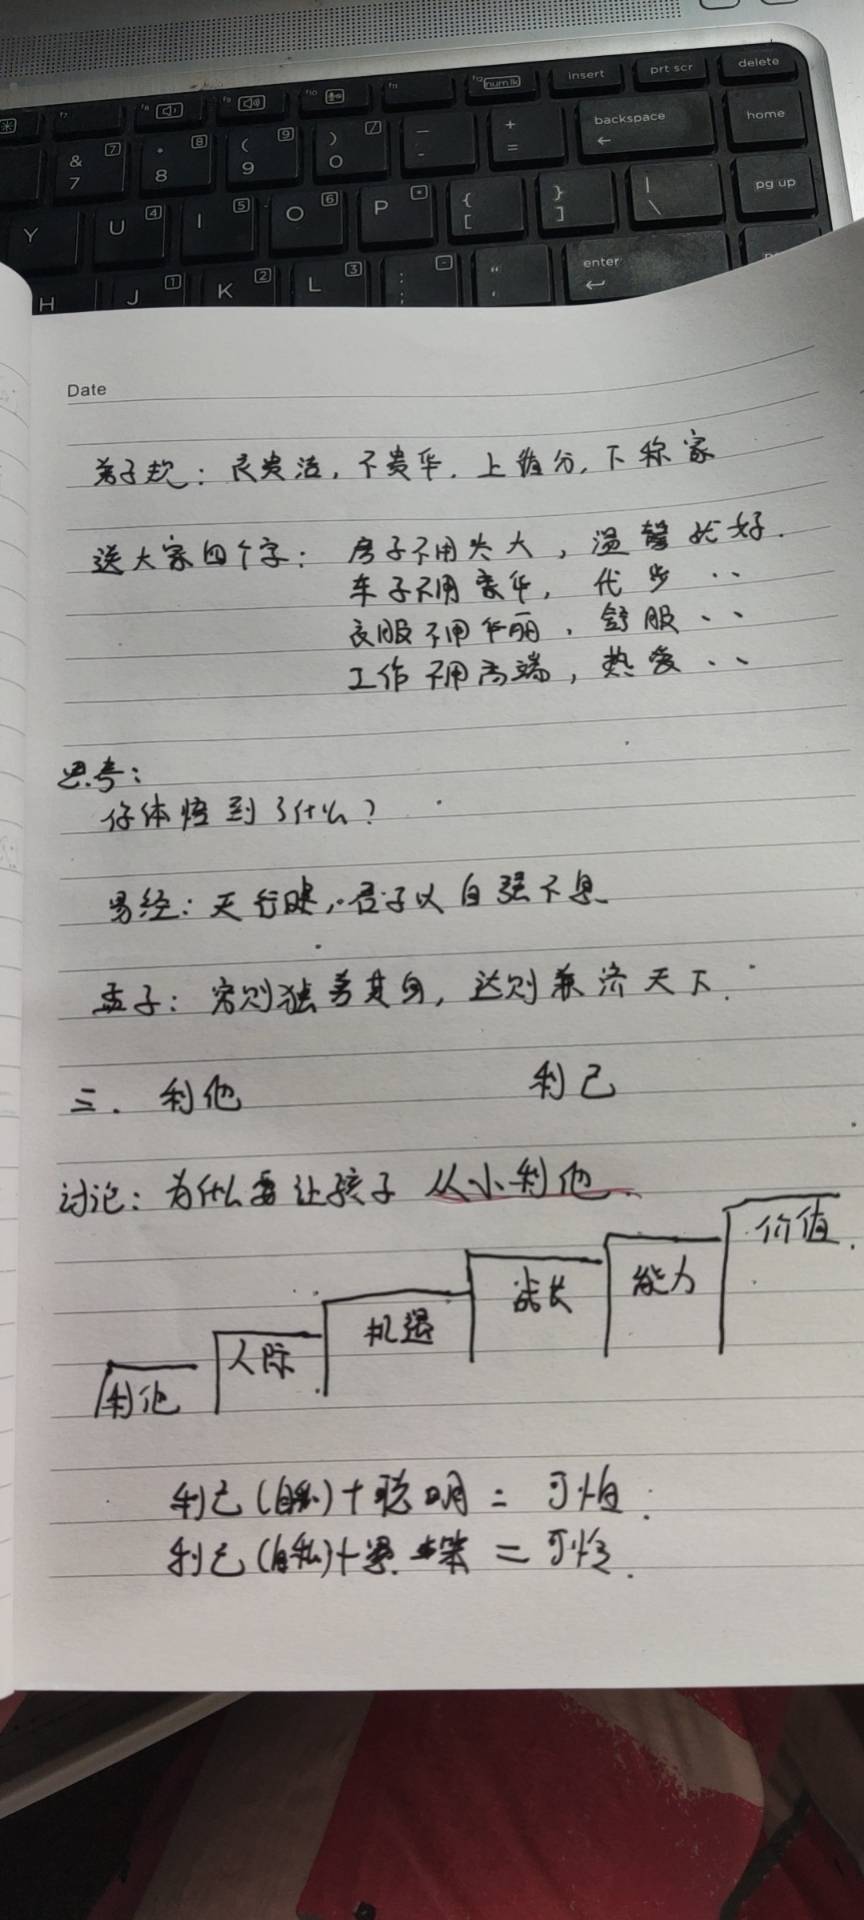 * f7 f8 f9 f10 f11 f12 num lk insert prt scr delete
& 7 7 * 8 8 ( 9 9 ) 0 / _ - + = backspace home
Y U 4 I 5 O 6 P * { [ } ] | \ pg up
H J 1 K 2 L 3 : ; - " ' enter
Date
弟子规：衣贵洁，不贵华．上循分，下称家
送大家四个字：房子不用太大，温馨就好．
车子不用豪华，代步 ··
衣服不用华丽，舒服 ··
工作不用高端，热爱 ··
思考：
你体悟到了什么？
易经：天行健，君子以自强不息
孟子：穷则独善其身，达则兼济天下．
三．利他 利己
讨论：为什么要让孩子 从小利他、
价值．
能力
成长
机遇
人际
利他
利己(自私)+聪明 = 可怕．
利己(自私)+ 笨 = 可怜．